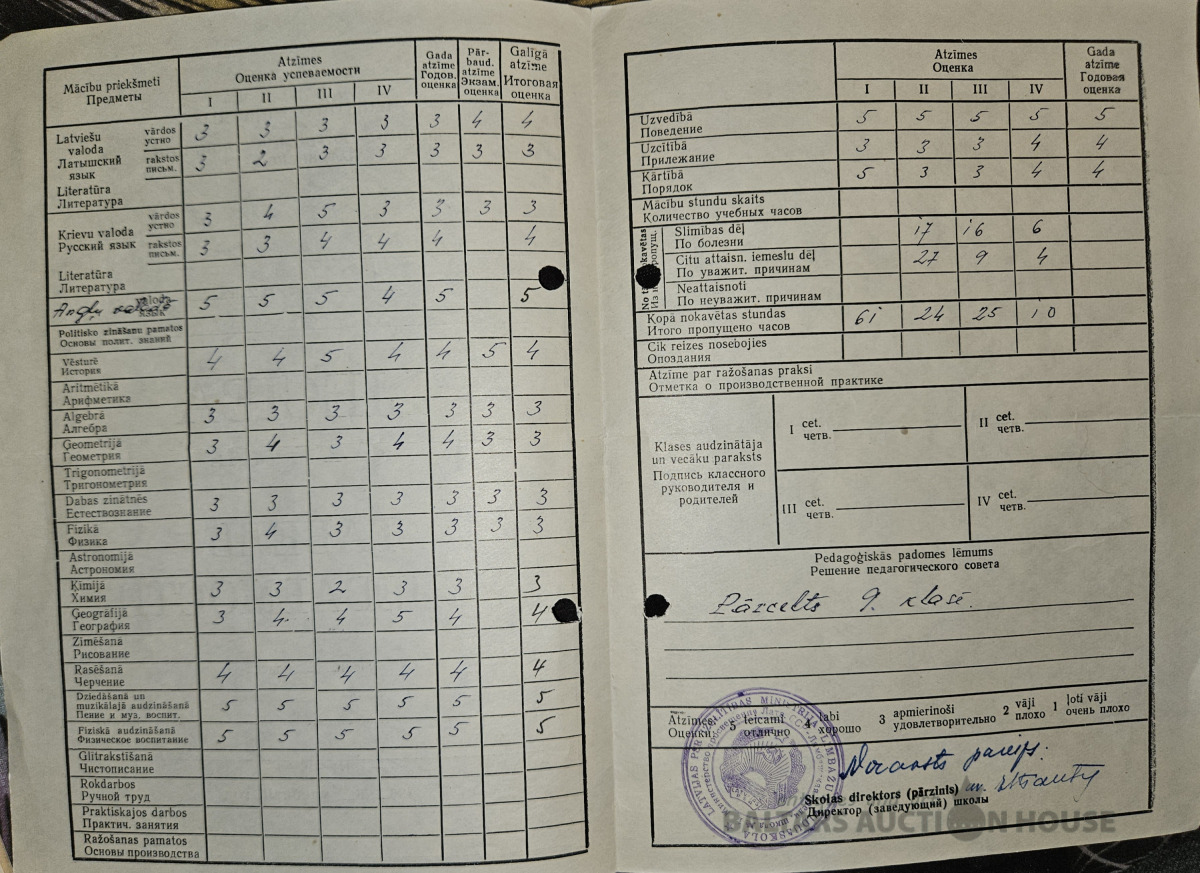 Mācību priekšmeti
Предметы
Atzīmes
Оценка успеваемости
I II III IV
Gada atzīme Годов. оценка
Pār- baud. atzīme Экзам. оценка
Galīgā atzīme Итоговая оценка
Latviešu valoda Латышский язык
vārdos устно 3 3 3 3 3 4 4
rakstos письм. 3 2 3 3 3 3 3
Literatūra
Литература
Krievu valoda
Русский язык
vārdos устно 3 4 5 3 3 3 3
rakstos письм. 3 3 4 4 4 4
Literatūra
Литература
Angļu valoda язык 5 5 5 4 5 5
Politisko zināšanu pamatos
Основы полит. знаний
Vēsturē
История 4 4 5 4 4 5 4
Aritmētikā
Арифметика
Algebrā
Алгебра 3 3 3 3 3 3 3
Ģeometrijā
Геометрия 3 4 3 4 4 3 3
Trigonometrijā
Тригонометрия
Dabas zinātnēs
Естествознание 3 3 3 3 3 3 3
Fizikā
Физика 3 4 3 3 3 3 3
Astronomijā
Астрономия
Ķīmijā
Химия 3 3 2 3 3 3
Ģeogrāfijā
География 3 4 4 5 4 4
Zīmēšanā
Рисование
Rasēšanā
Черчение 4 4 4 4 4 4
Dziedāšanā un
muzikālajā audzināšanā
Пение и муз. воспит. 5 5 5 5 5 5
Fiziskā audzināšanā
Физическое воспитание 5 5 5 5 5 5
Glītrakstīšanā
Чистописание
Rokdarbos
Ручной труд
Praktiskajos darbos
Практич. занятия
Ražošanas pamatos
Основы производства
Atzīmes
Оценка
I II III IV
Gada atzīme Годовая оценка
Uzvedībā
Поведение 5 5 5 5 5
Uzcītībā
Прилежание 3 3 3 4 4
Kārtībā
Порядок 5 3 3 4 4
Mācību stundu skaits
Количество учебных часов
Slimības dēļ
По болезни 17 16 6
Citu attaisn. iemeslu dēļ
По уважит. причинам 27 9 4
Neattaisnoti
По неуважит. причинам
Kopā nokavētas stundas
Итого пропущено часов 61 24 25 10
Cik reizes nosebojies
Опоздания
Atzīme par ražošanas praksi
Отметка о производственной практике
Klases audzinātāja
un vecāku paraksts
Подпись классного
руководителя и
родителей
I cet. четв.
II cet. четв.
III cet. четв.
IV cet. четв.
Pedagoģiskās padomes lēmums
Решение педагогического совета
Pārcelts 9. klasē.
Atzīmes: 5 teicami 4 labi 3 apmierinoši 2 vāji 1 ļoti vāji
Оценки: отлично хорошо удовлетворительно плохо очень плохо
Noraksts pareizs.
Skolas direktors (pārzinis)
Директор (заведующий) школы
BALTIJAS AUCTION HOUSE